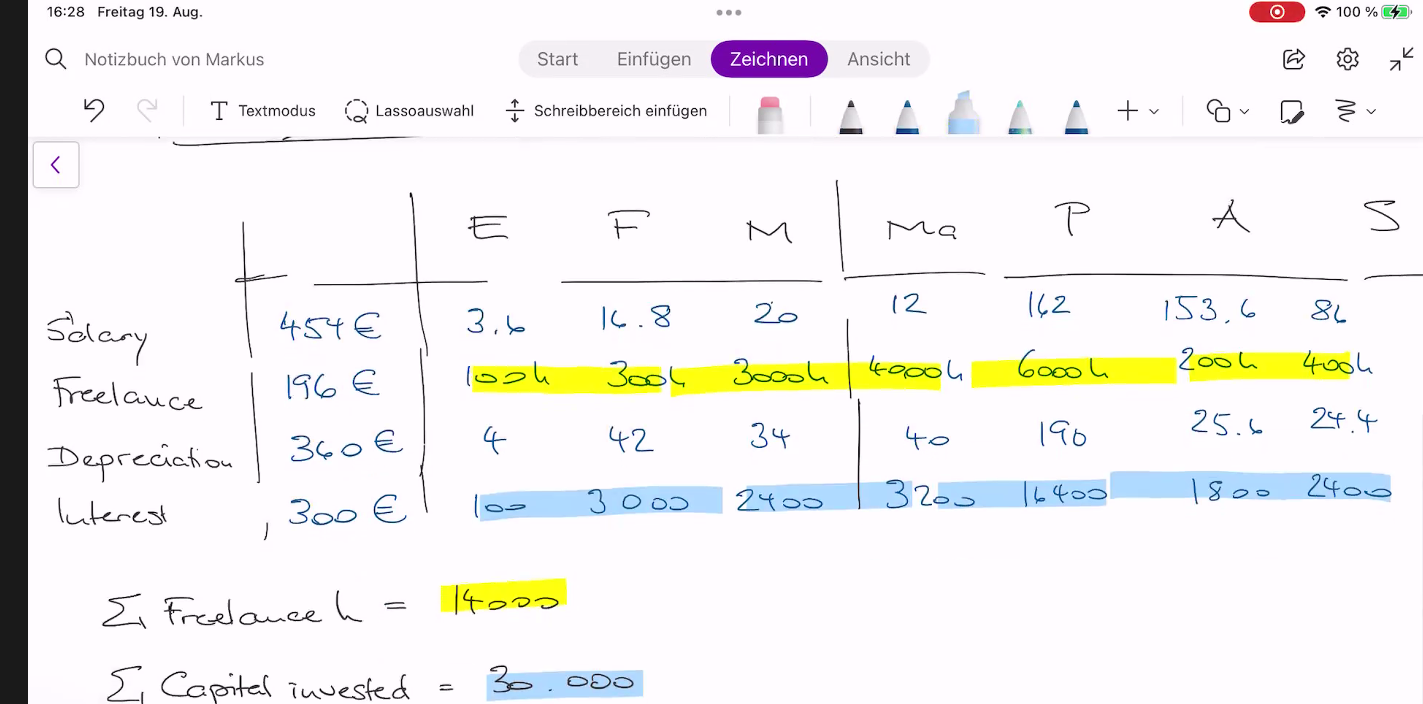 16:28 Freitag 19. Aug. 100 %
Notizbuch von Markus Start Einfügen Zeichnen Ansicht
Textmodus Lassoauswahl Schreibbereich einfügen
E F M Ma P A S
Salary 454 € 3.6 16.8 20 12 162 153.6 86
Freelance 196 € 100h 300h 3000h 4000h 6000h 200h 400h
Depreciation 360 € 4 42 34 40 190 25.6 24.4
Interest 300 € 100 3000 2400 3200 16400 1800 2400
Σ Freelance h = 14000
Σ Capital invested = 30.000